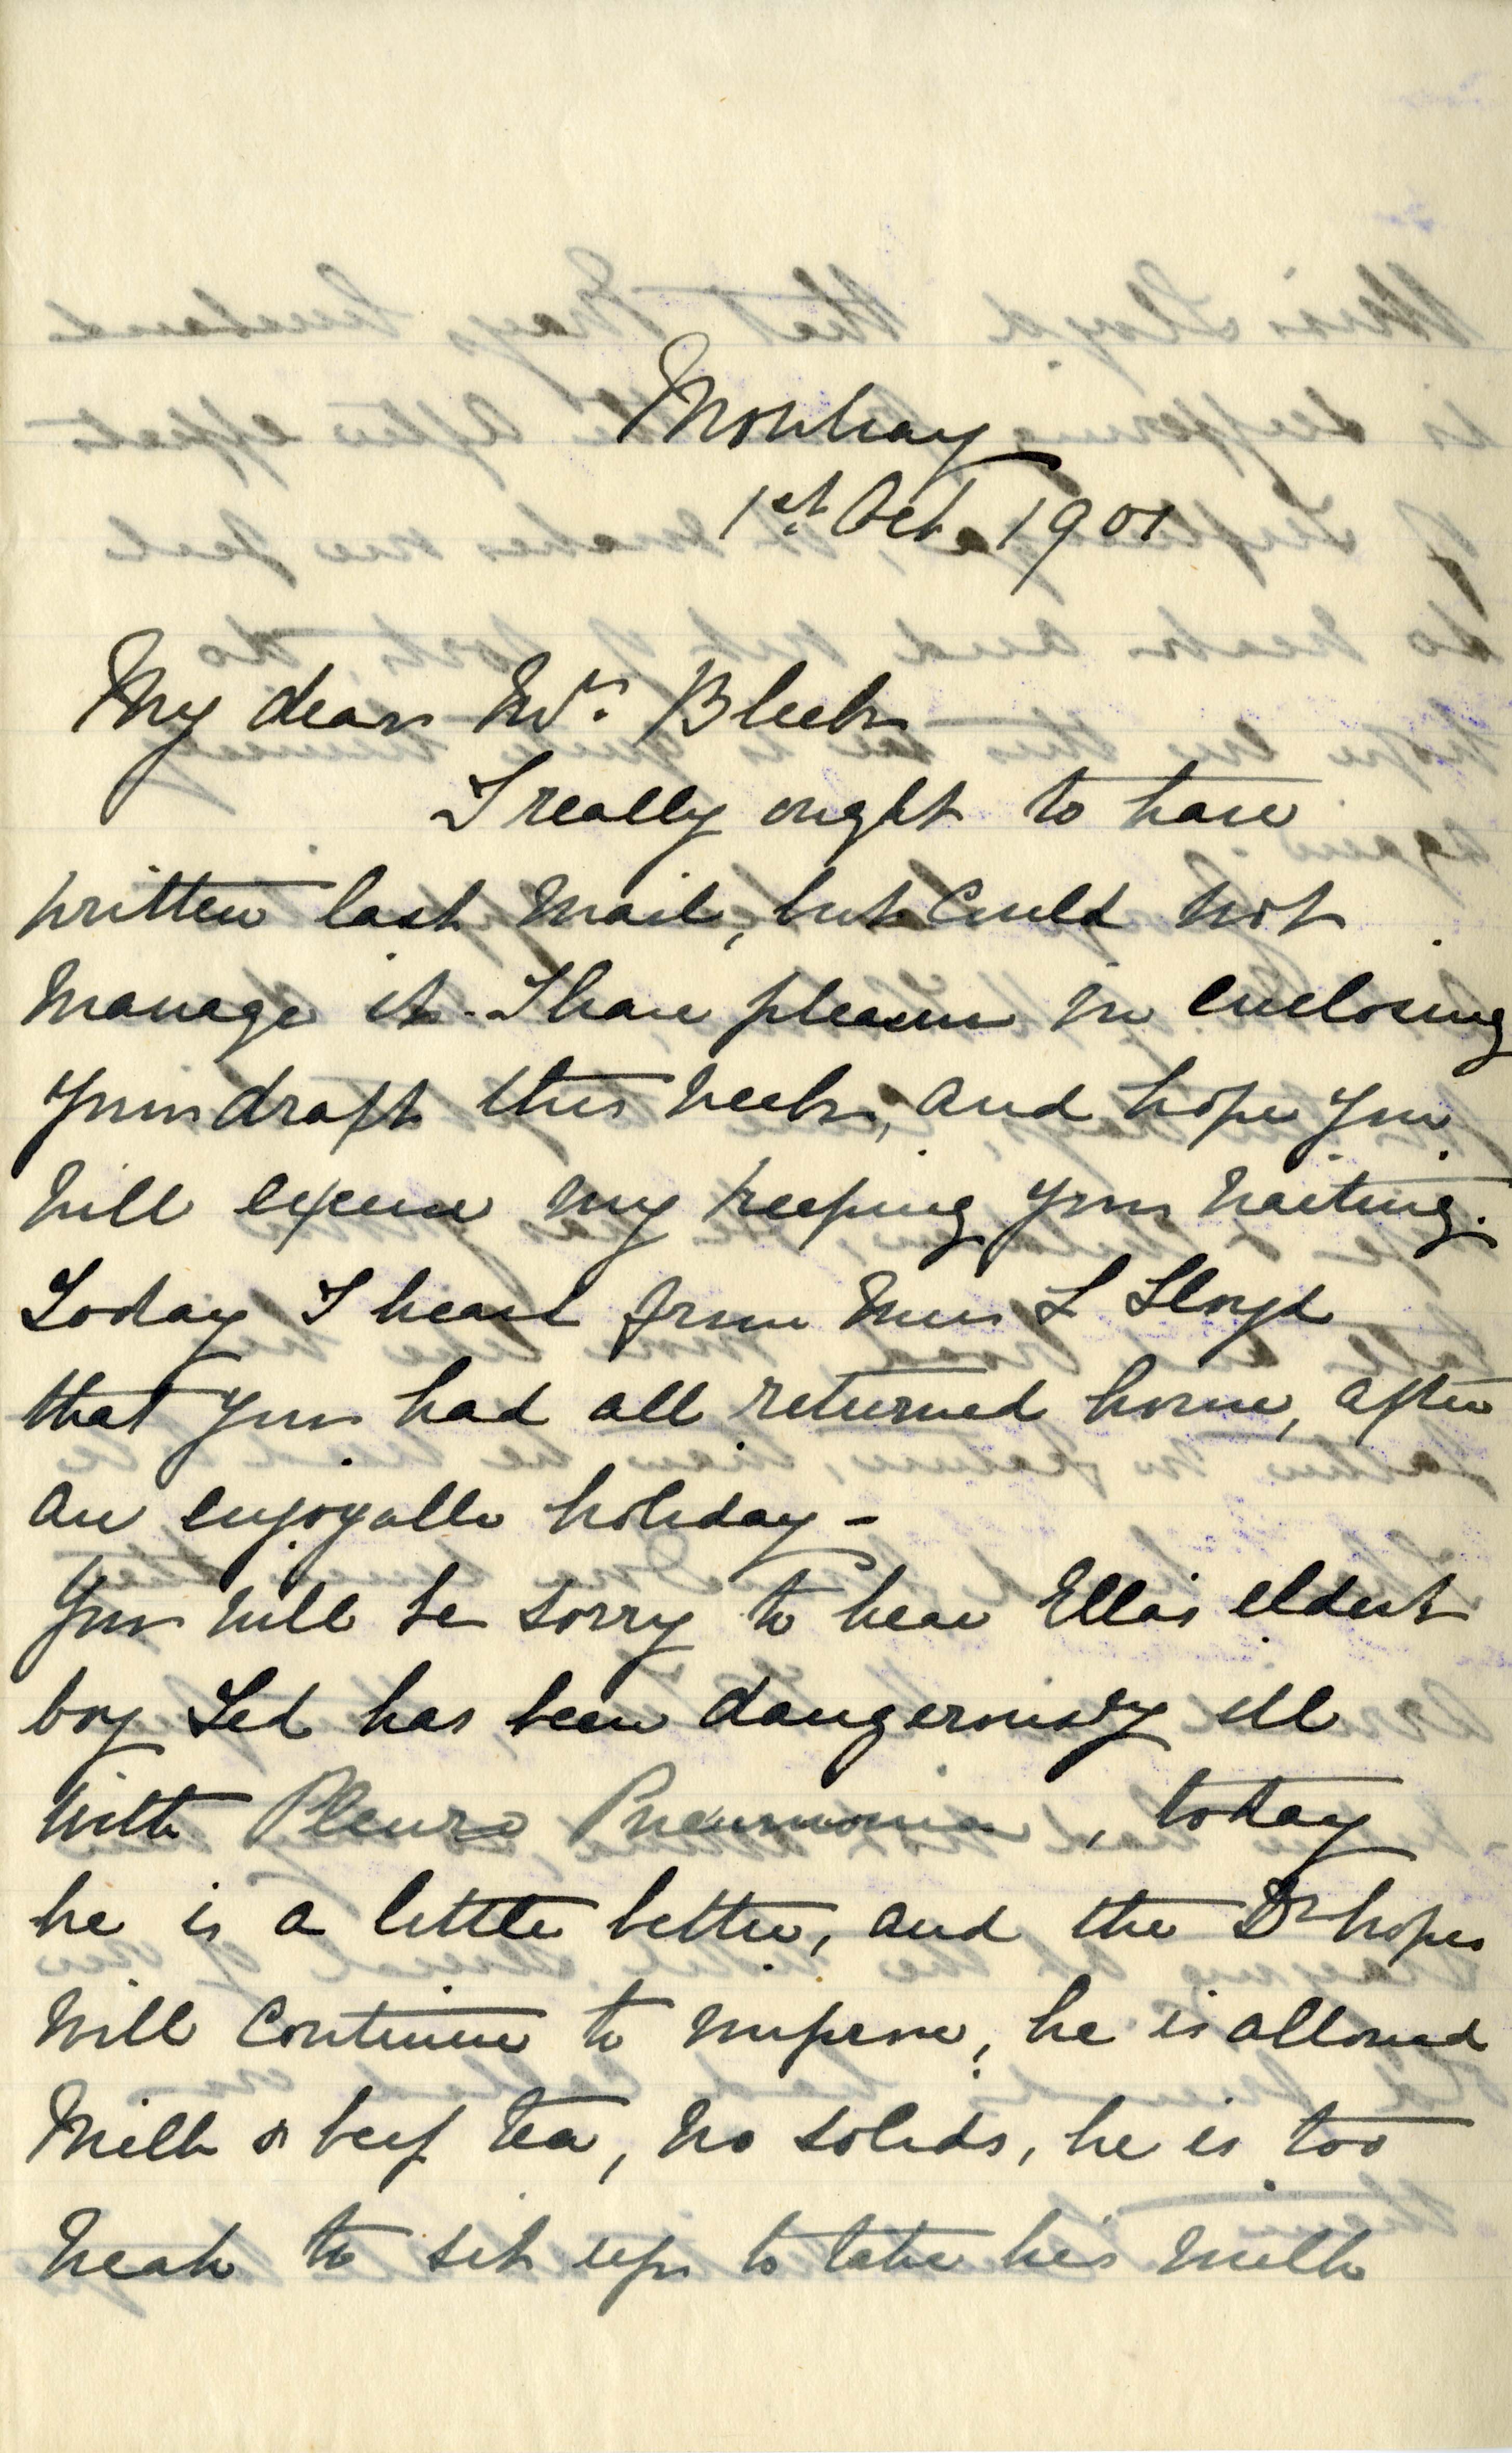 Mowbray
1st Oct 1901
My dear Mrs. Bleek
I really ought to have
written last mail, but could not
manage it. I have pleasure in enclosing
your draft this week, and hope you
will excuse my keeping you waiting.
Today I heard from Miss L Lloyd
that you had all returned home, after
an enjoyable holiday -
You will be sorry to hear Ella's eldest
boy Ted has been dangerously ill
with Pleuro Pneumonia, today
he is a little better, and the Dr hopes
will continue to improve, he is allowed
Milk & beef tea, no solids, he is too
weak to sit up to take his milk